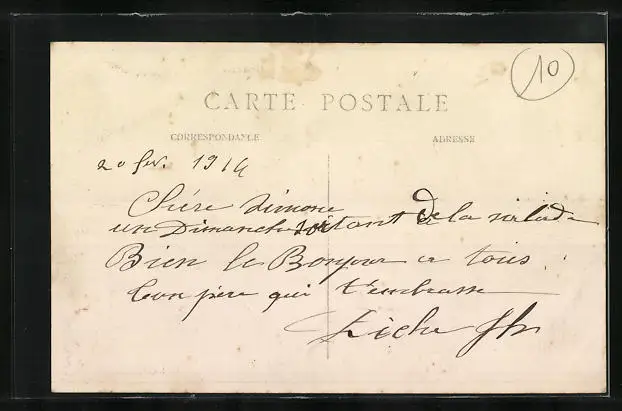 10
CARTE POSTALE
CORRESPONDANCE
ADRESSE
20 fev. 1914
Chére Simone
un Dimanche sortant de la
Bien le Bonjour a tous
ton père qui t'embrasse